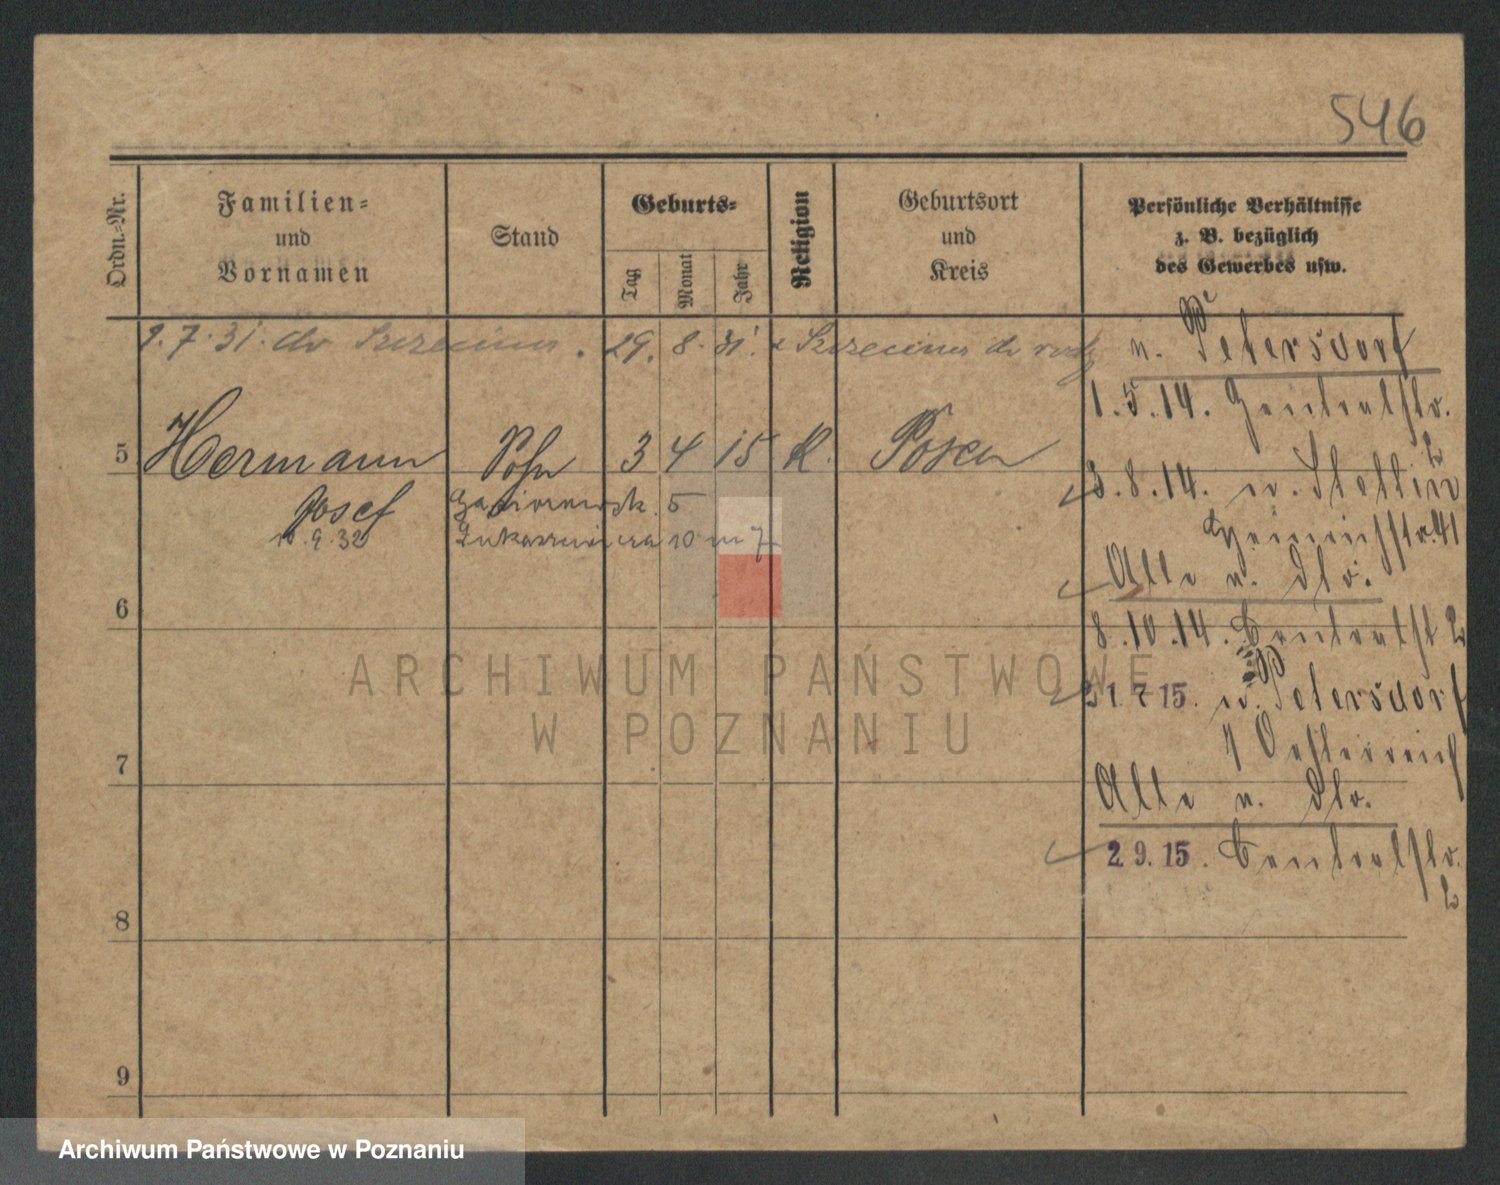 546
Ordn.-Nr.
Familien-
und
Vornamen
Stand
Geburts-
Tag
Monat
Jahr
Religion
Geburtsort
und
Kreis
Persönliche Verhältnisse
z. B. bezüglich
des Gewerbes usw.
9.7.31. do Szczecina. 29. 8. 31. z Szczecina do
n. Petersdorf
1.5.14. Zentralstr.
2
5 Hermann Sohn 3 4 15 K. Posen
3.8.14. n. Stettin
Josef 5
Heinrichstr. 41
10.9.32 Łukaszewicza 10 m 7
Alte n. Str.
6
8.10.14. Centralst 2
21.7.15. n. Petersdorf
Oesterreich
7
Alte n. Str.
29.15. Centralstr.
2
8
9
ARCHIWUM PAŃSTWOWE
W POZNANIU
Archiwum Państwowe w Poznaniu